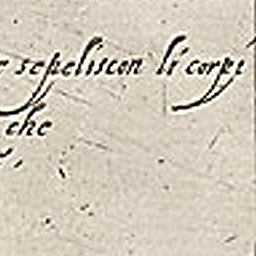 e sepeliscon li corpi
che